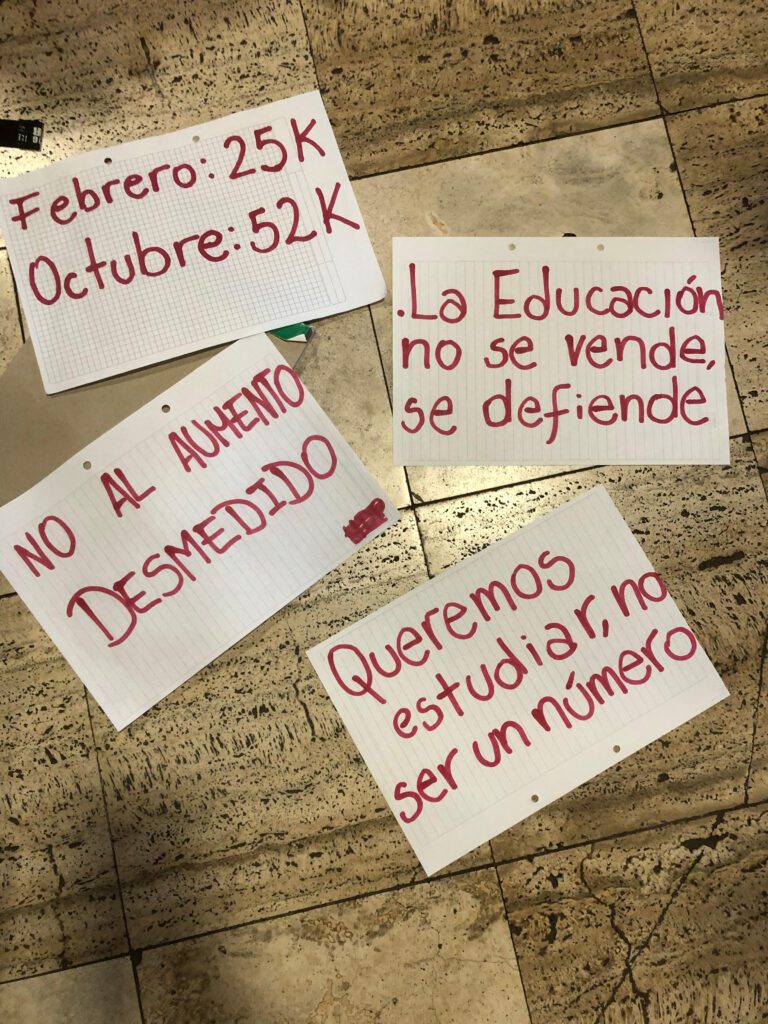 Febrero: 25K
Octubre: 52K
.La Educación
no se vende,
se defiende
NO AL AUMENTO
DESMEDIDO
Queremos
estudiar, no
ser un número